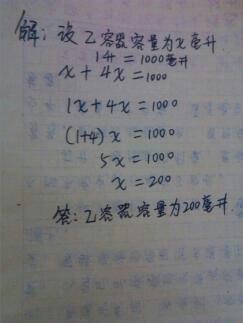 解：设乙容器容量为x毫升
1升=1000毫升
x+4x=1000
1x+4x=1000
(1+4)x=1000
5x=1000
x=200
答：乙容器容量为200毫升.